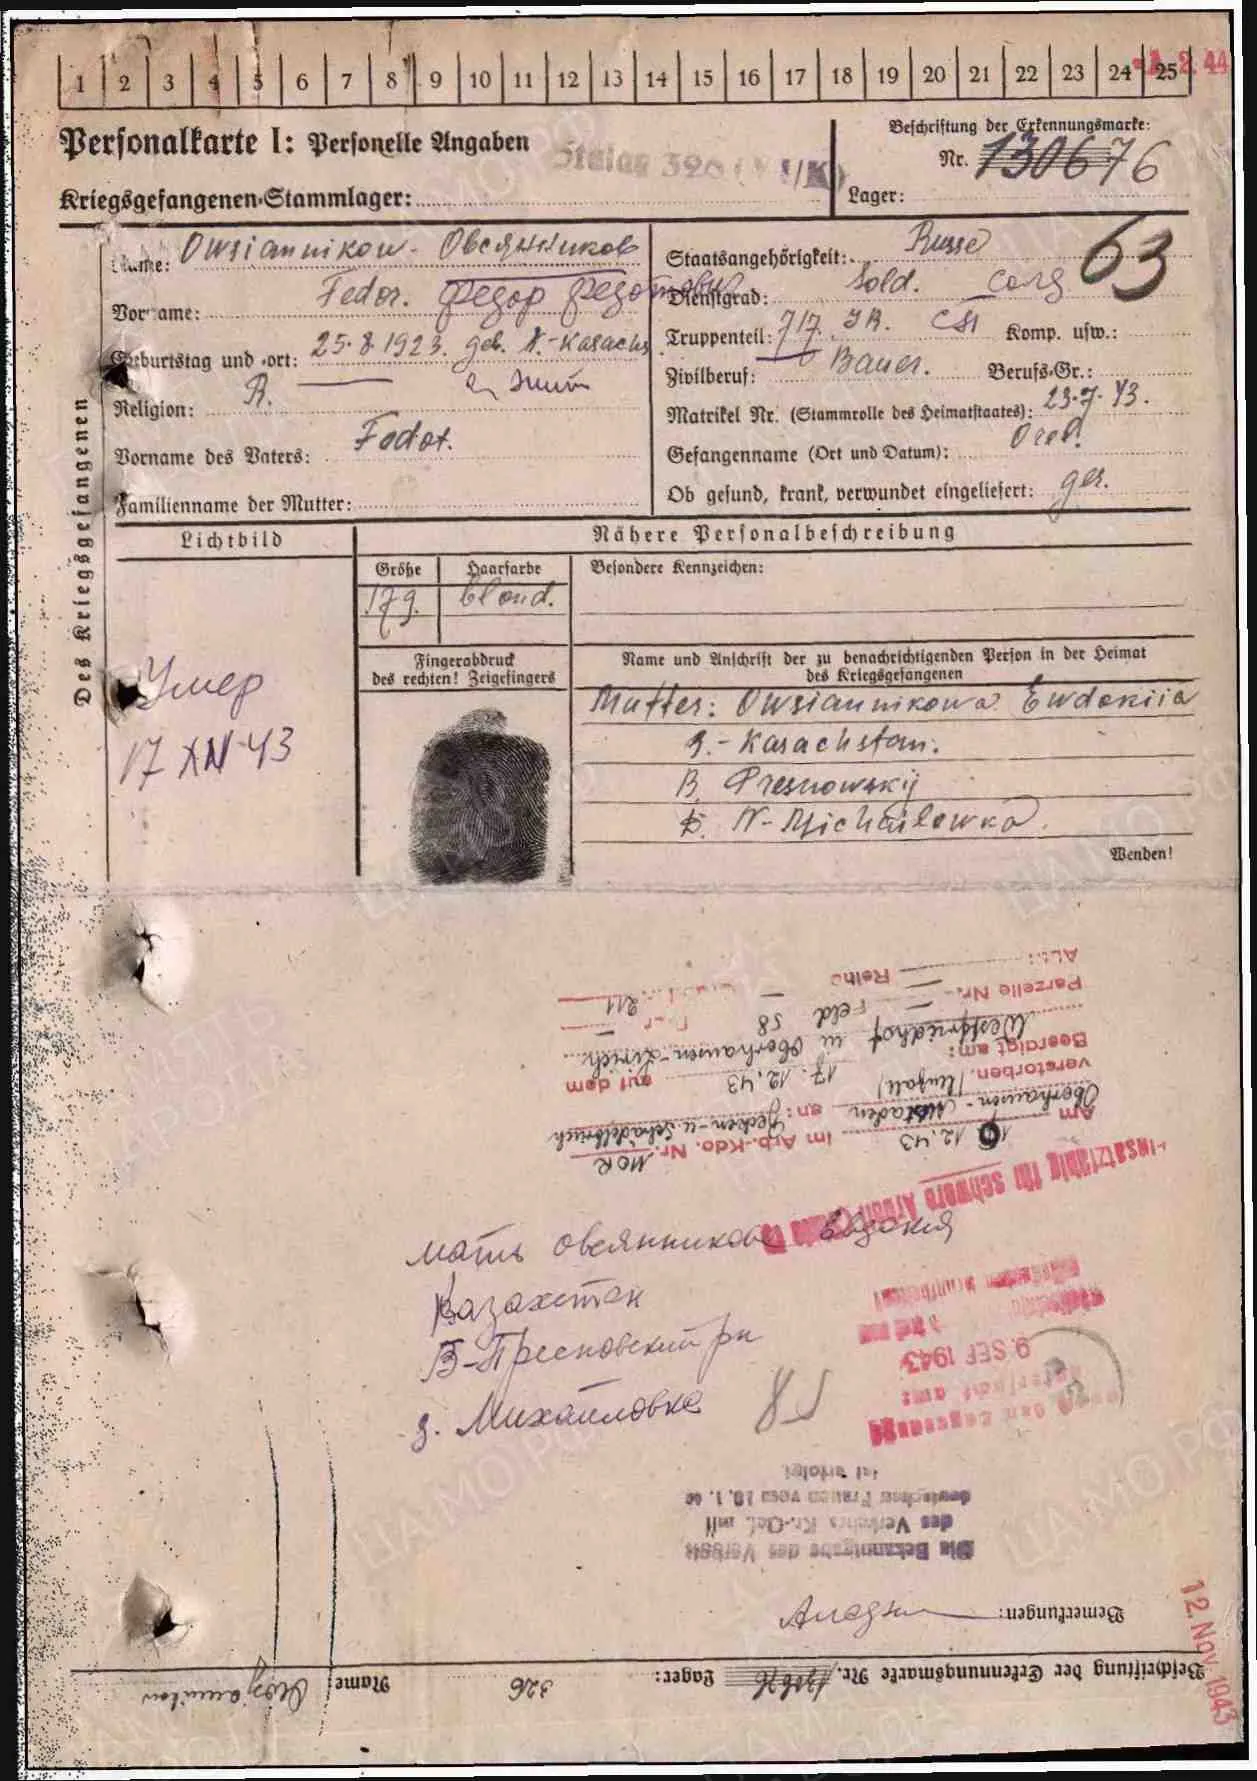 1 2 3 4 5 6 7 8 9 10 11 12 13 14 15 16 17 18 19 20 21 22 23 24 25
2. 44
Personalkarte I: Personelle Angaben
Beschriftung der Erkennungsmarke:
Stalag 326 (VI/K)
Nr. 130676
Kriegsgefangenen-Stammlager:
Lager:
63
Des Kriegsgefangenen
Name: Owsiannikow. Овсянников
Vorname: Fedor. Федор Федотович
Geburtstag und -ort: 25.8.1923. geb. N.-Kasachs
Religion: R.
Vorname des Vaters: Fedot.
Familienname der Mutter:
Staatsangehörigkeit: Russe
Dienstgrad: Sold. солд
Truppenteil: 717. IR. СП Komp. usw.:
Zivilberuf: Bauer. Berufs-Gr.:
Matrikel Nr. (Stammrolle des Heimatstaates): 23.7.43.
Gefangenname (Ort und Datum): Orel.
Ob gesund, krank, verwundet eingeliefert: ges.
Lichtbild
Nähere Personalbeschreibung
Größe
Haarfarbe
Besondere Kennzeichen:
179.
blond.
Fingerabdruck
des rechten! Zeigefingers
Name und Anschrift der zu benachrichtigenden Person in der Heimat
des Kriegsgefangenen
Умер
17 XII-43
Mutter: Owsiannikowa Ewdokiia
G.-Kasachstan.
B. Presnowskij
D. N-Michailowka.
Wenden!
мать овсянникова Евдокия
Казахстан
Б-Пресновский рн
д. Михайловка
Name: 
Lager: 326
Beschriftung der Erkennungsmarke Nr. 130676
Bemerkungen:
12. NOV. 1943
Die Bekanntgabe des Verbots
des Verkehrs Kr.-Gef. mit
deutschen Frauen vom 10. 1. 40
ist erfolgt.
9. SEP. 1943
Einsatzfähig für schwere Arbeit
Am 16 12.43 im Arb.-Kdo. Nr. MOR
Oberhausen-Alstaden an: Becken- u. Schädelbruch
verstorben. (Unfall)
Beerdigt am: 17. 12. 43 auf dem
Westfriedhof in Oberhausen-Lirich
Parzelle Nr. — Feld 58
Reihe — 211
Akt.: